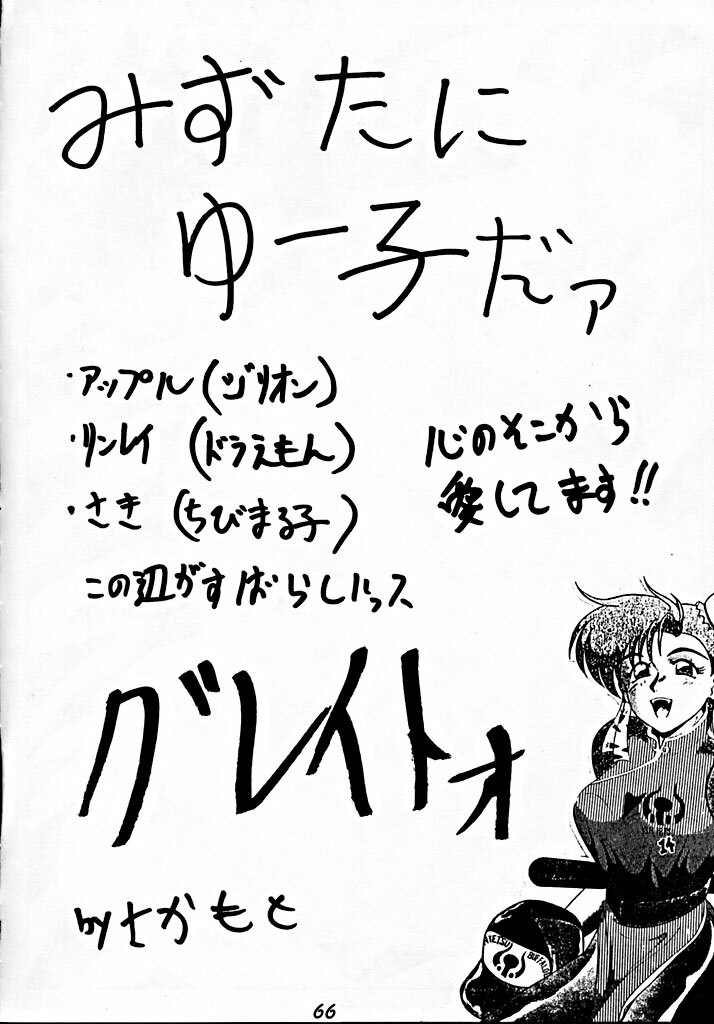 みずたに
ゆー子だァ
・アップル(ゾリオン)
・リンレイ (ドラえもん)
・さき (ちびまる子)
この辺がすばらしいっス
心のそこから
愛してます!!
グレイトォ
by さかもと
14
66